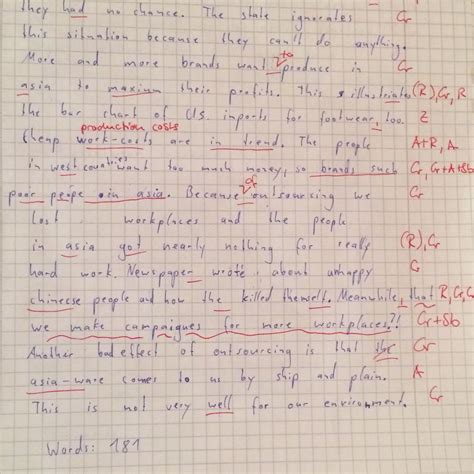 they had no chance. The state ignorates Gr
this situation because they can't do anything.
to
More and more brands want produce in Gr
asia to maxium their profits. This illustriates (R), Gr, R
the bar chart of U.S. imports for footwear, too. Z
production costs
Cheap work-costs are in trend. The people A+R, A
in west countries want too much money, so brands such Gr, Gr+A+Sb
of
poor peope in asia. Because outsourcing we Gr
lost workplaces and the people
in asia got nearly nothing for really (R), Gr
hard work. Newspaper wrote about unhappy G
chineese people and how the killed themself. Meanwhile, that R, Gr, G
we make campaigues for more workplaces?! Gr+Sb
Another bad effect of outsourcing is that the Gr
asia-ware comes to us by ship and plain. A
This is not very well for our environment. Gr
Words: 181